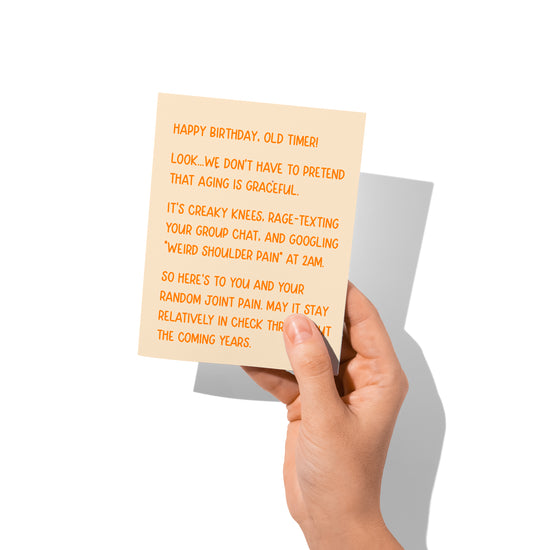 HAPPY BIRTHDAY, OLD TIMER!
LOOK...WE DON'T HAVE TO PRETEND
THAT AGING IS GRACEFUL.
IT'S CREAKY KNEES, RAGE-TEXTING
YOUR GROUP CHAT, AND GOOGLING
"WEIRD SHOULDER PAIN" AT 2AM.
SO HERE'S TO YOU AND YOUR
RANDOM JOINT PAIN. MAY IT STAY
RELATIVELY IN CHECK
THE COMING YEARS.